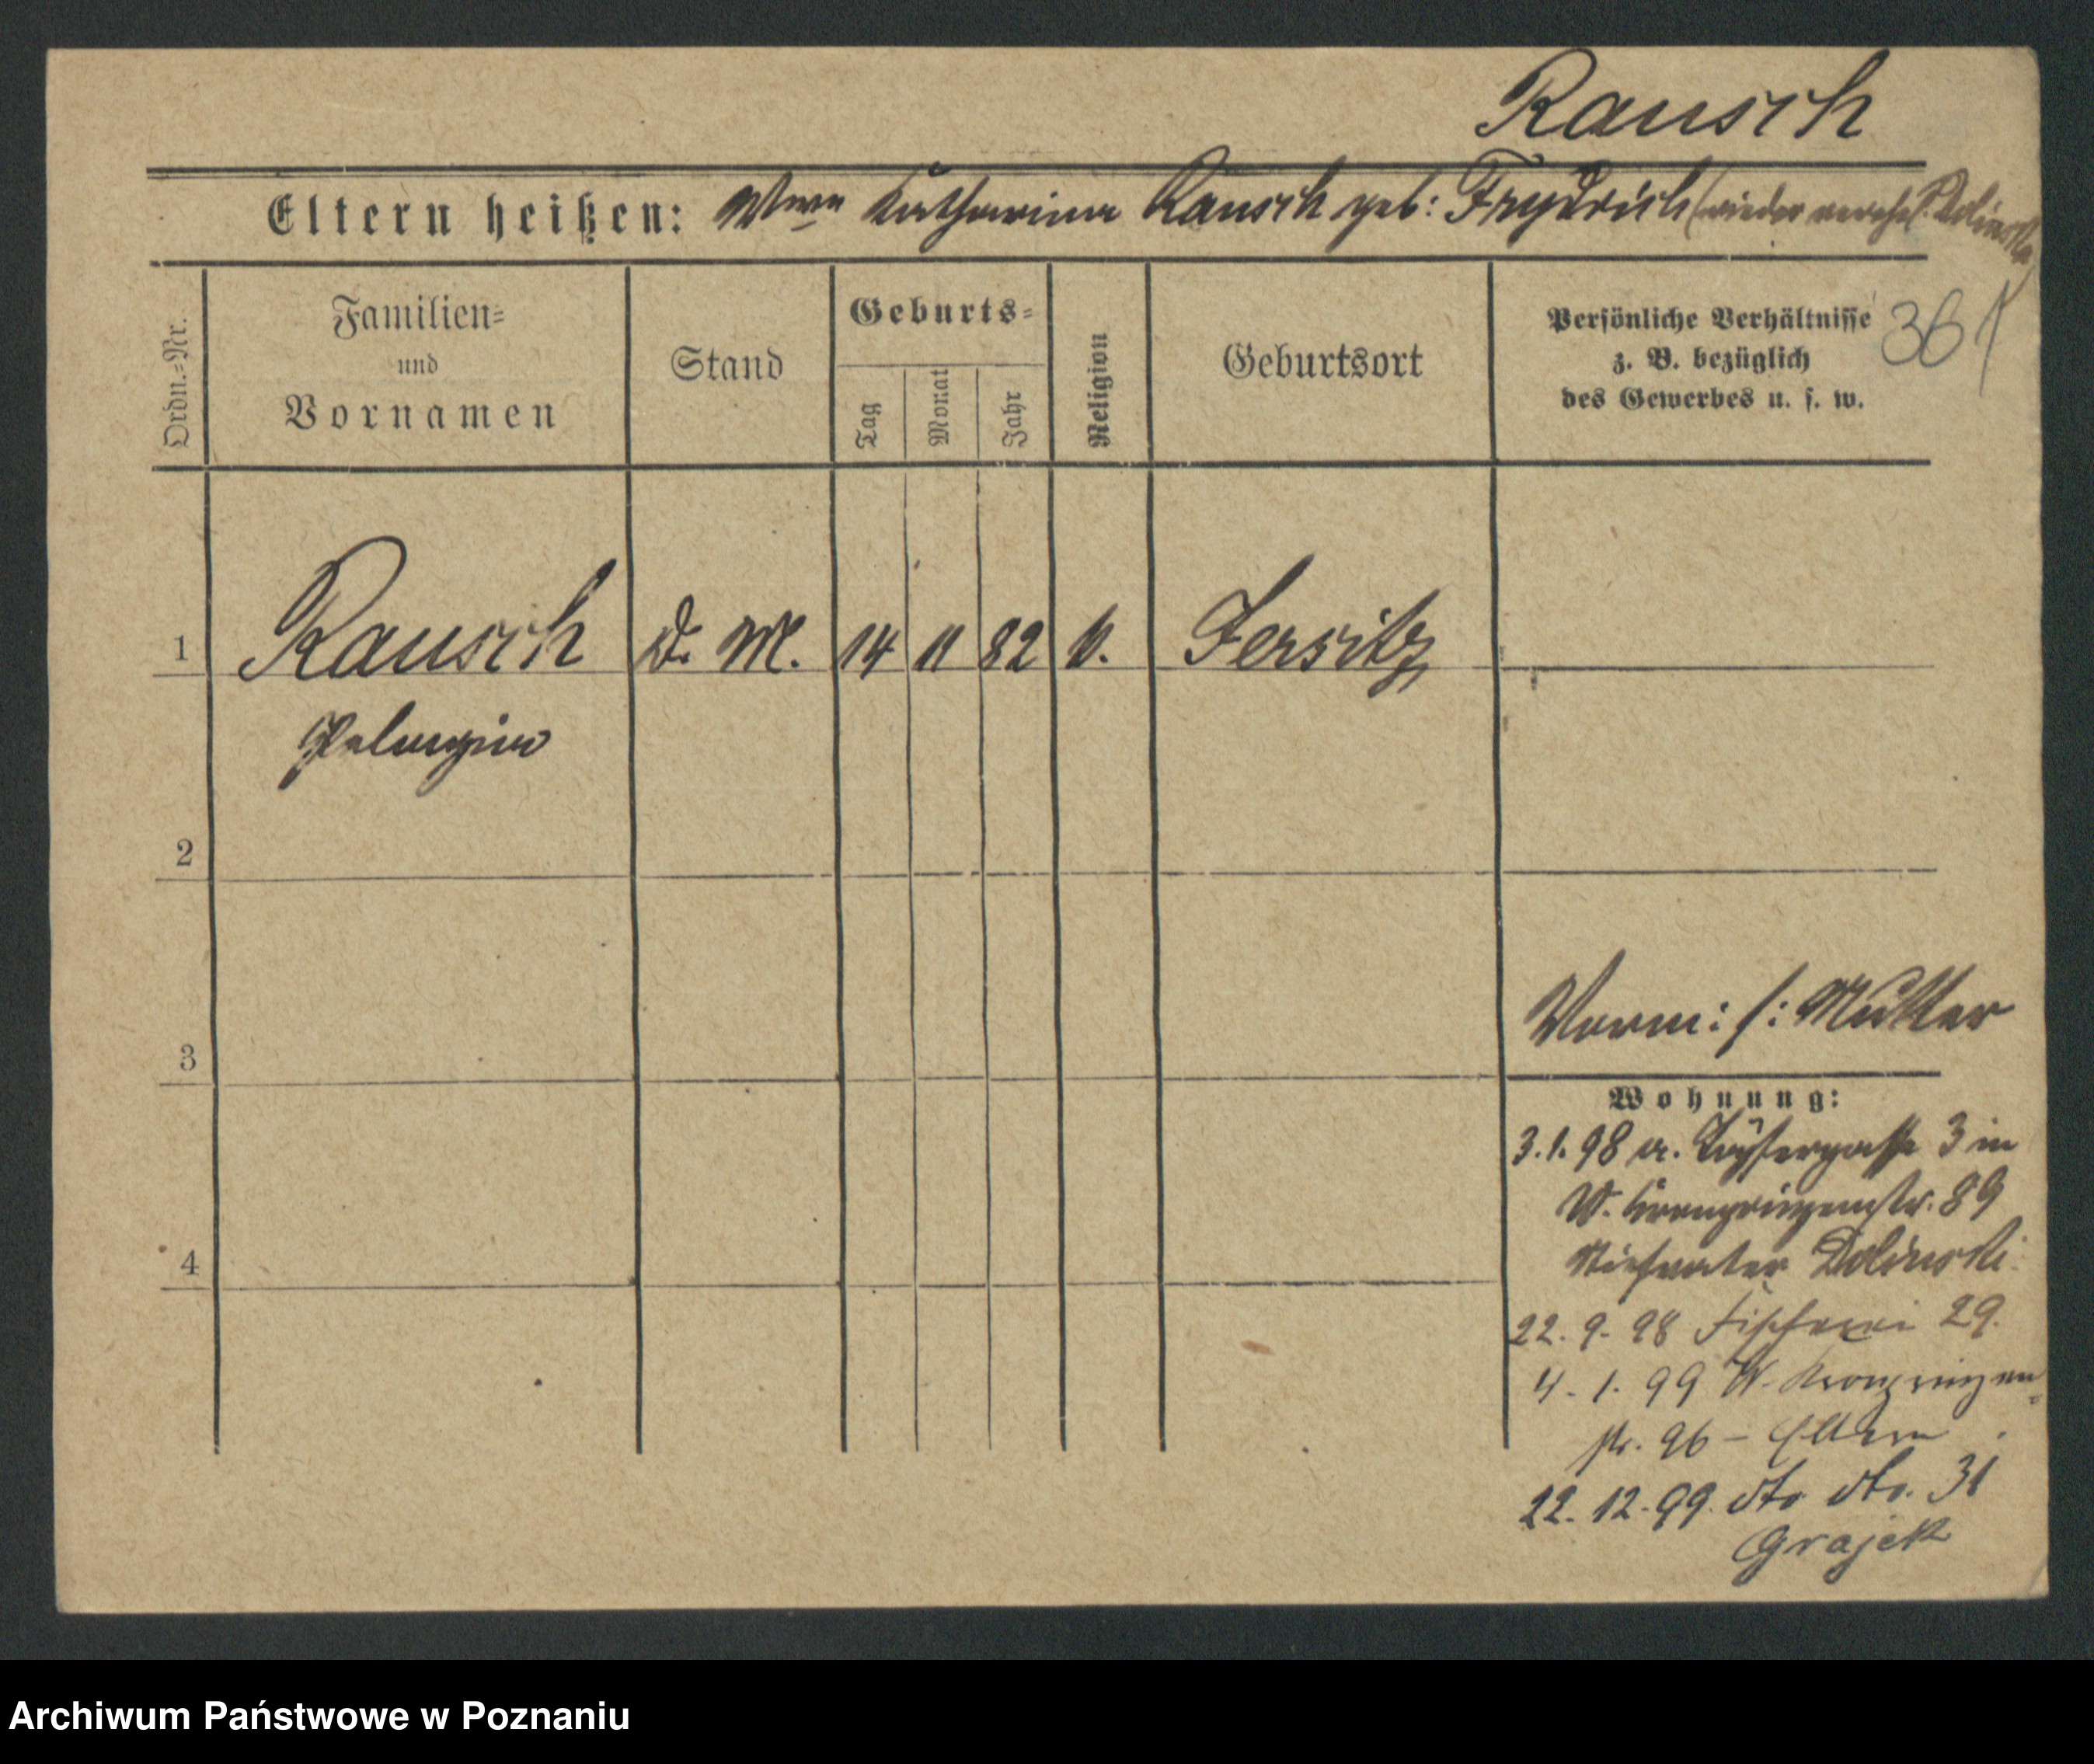 Rausch
Eltern heißen: Wwe Katharina Rausch geb: Frydrich (wieder verehel. Dolinska
Ordn.-Nr.
Familien- und Vornamen
Stand
Geburts-
Tag
Monat
Jahr
Religion
Geburtsort
Persönliche Verhältnisse
z. B. bezüglich
des Gewerbes u. s. w.
361
1 Rausch D. M. 14 11 82 k. Jersitz
Pelagia
2
3
Vorm: /: Mutter
Wohnung:
3.1.98 a. Töpfergasse 3 in
W. Kronprinzenstr. 89
Stiefvater Dolinski
4
22. 9. 98 Fischerei 29.
4. 1. 99 W. Kronprinzen
str. 96 – Eltern
22. 12. 99. dto dto. 31
Grajek
Archiwum Państwowe w Poznaniu